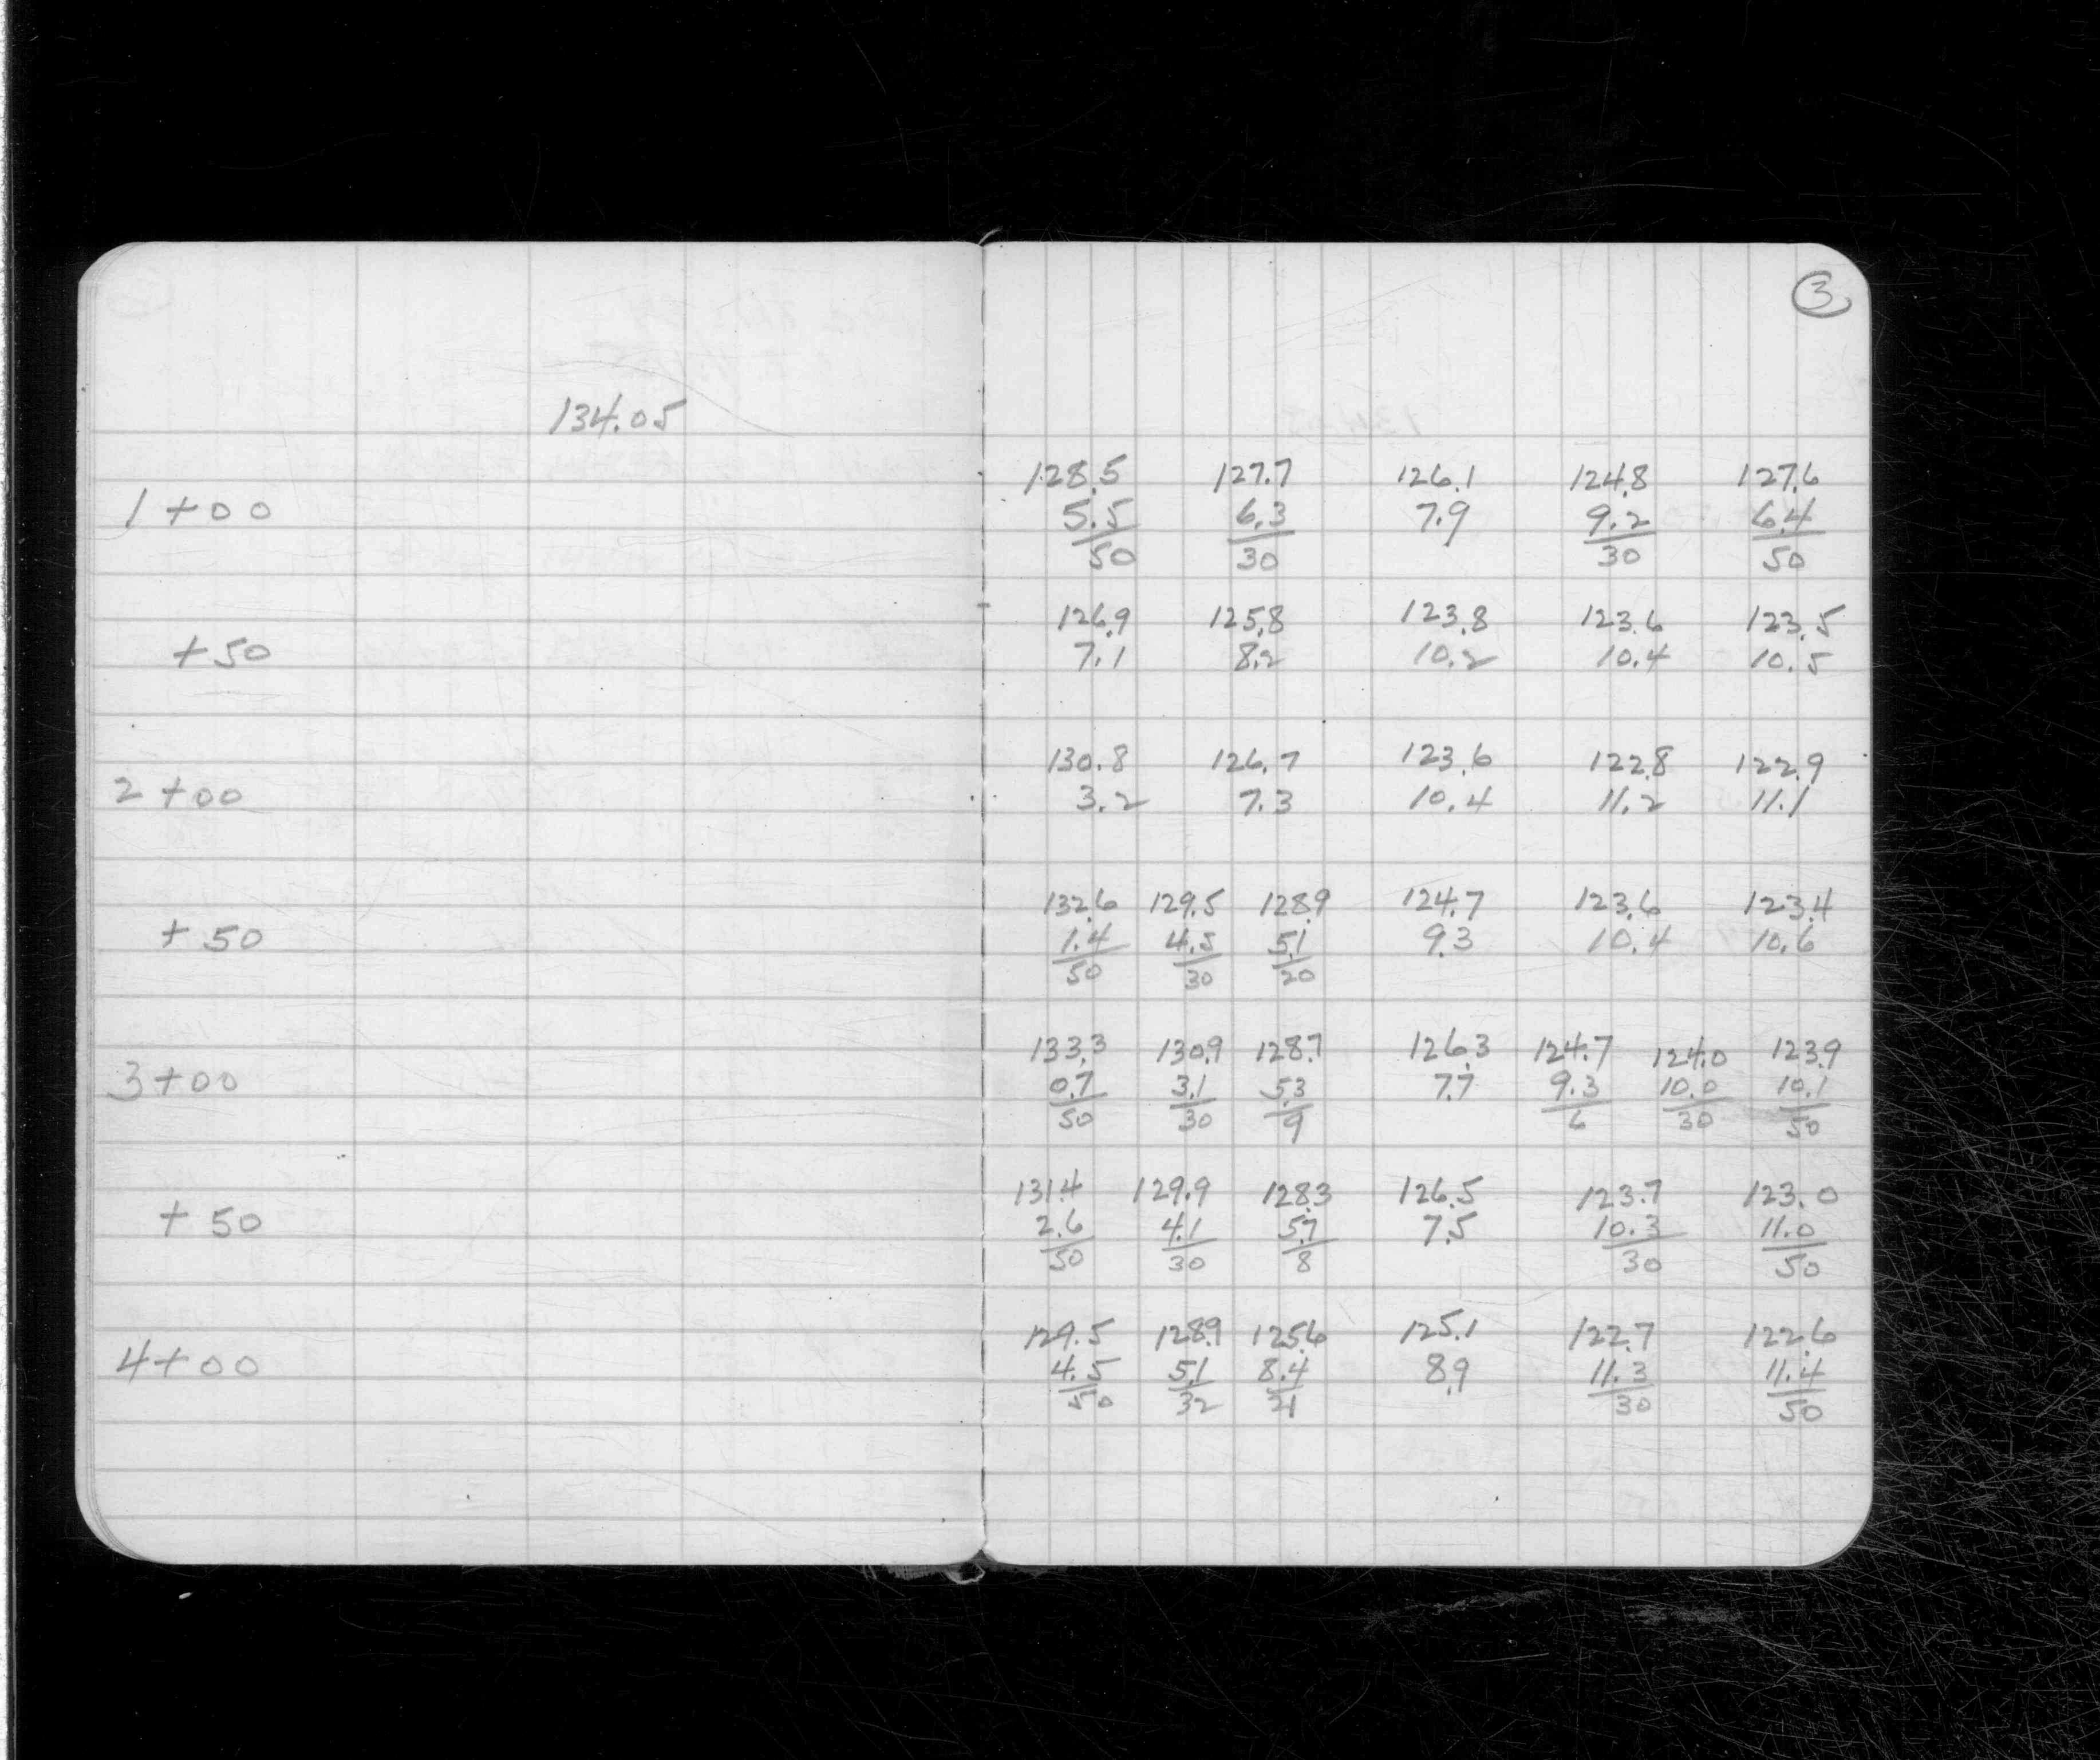 3
134.05
128.5 127.7 126.1 124.8 127.6
1+00 5.5 6.3 7.9 9.2 6.4
50 30 30 50
126.9 125.8 123.8 123.6 123.5
+50 7.1 8.2 10.2 10.4 10.5
130.8 126.7 123.6 122.8 122.9
2+00 3.2 7.3 10.4 11.2 11.1
132.6 129.5 128.9 124.7 123.6 123.4
+50 1.4 4.5 5.1 9.3 10.4 10.6
50 30 20
133.3 130.9 128.7 126.3 124.7 124.0 123.9
3+00 0.7 3.1 5.3 7.7 9.3 10.0 10.1
50 30 9 6 30 50
131.4 129.9 128.3 126.5 123.7 123.0
+50 2.6 4.1 5.7 7.5 10.3 11.0
50 30 8 30 50
129.5 128.9 125.6 125.1 122.7 122.6
4+00 4.5 5.1 8.4 8.9 11.3 11.4
50 32 21 30 50